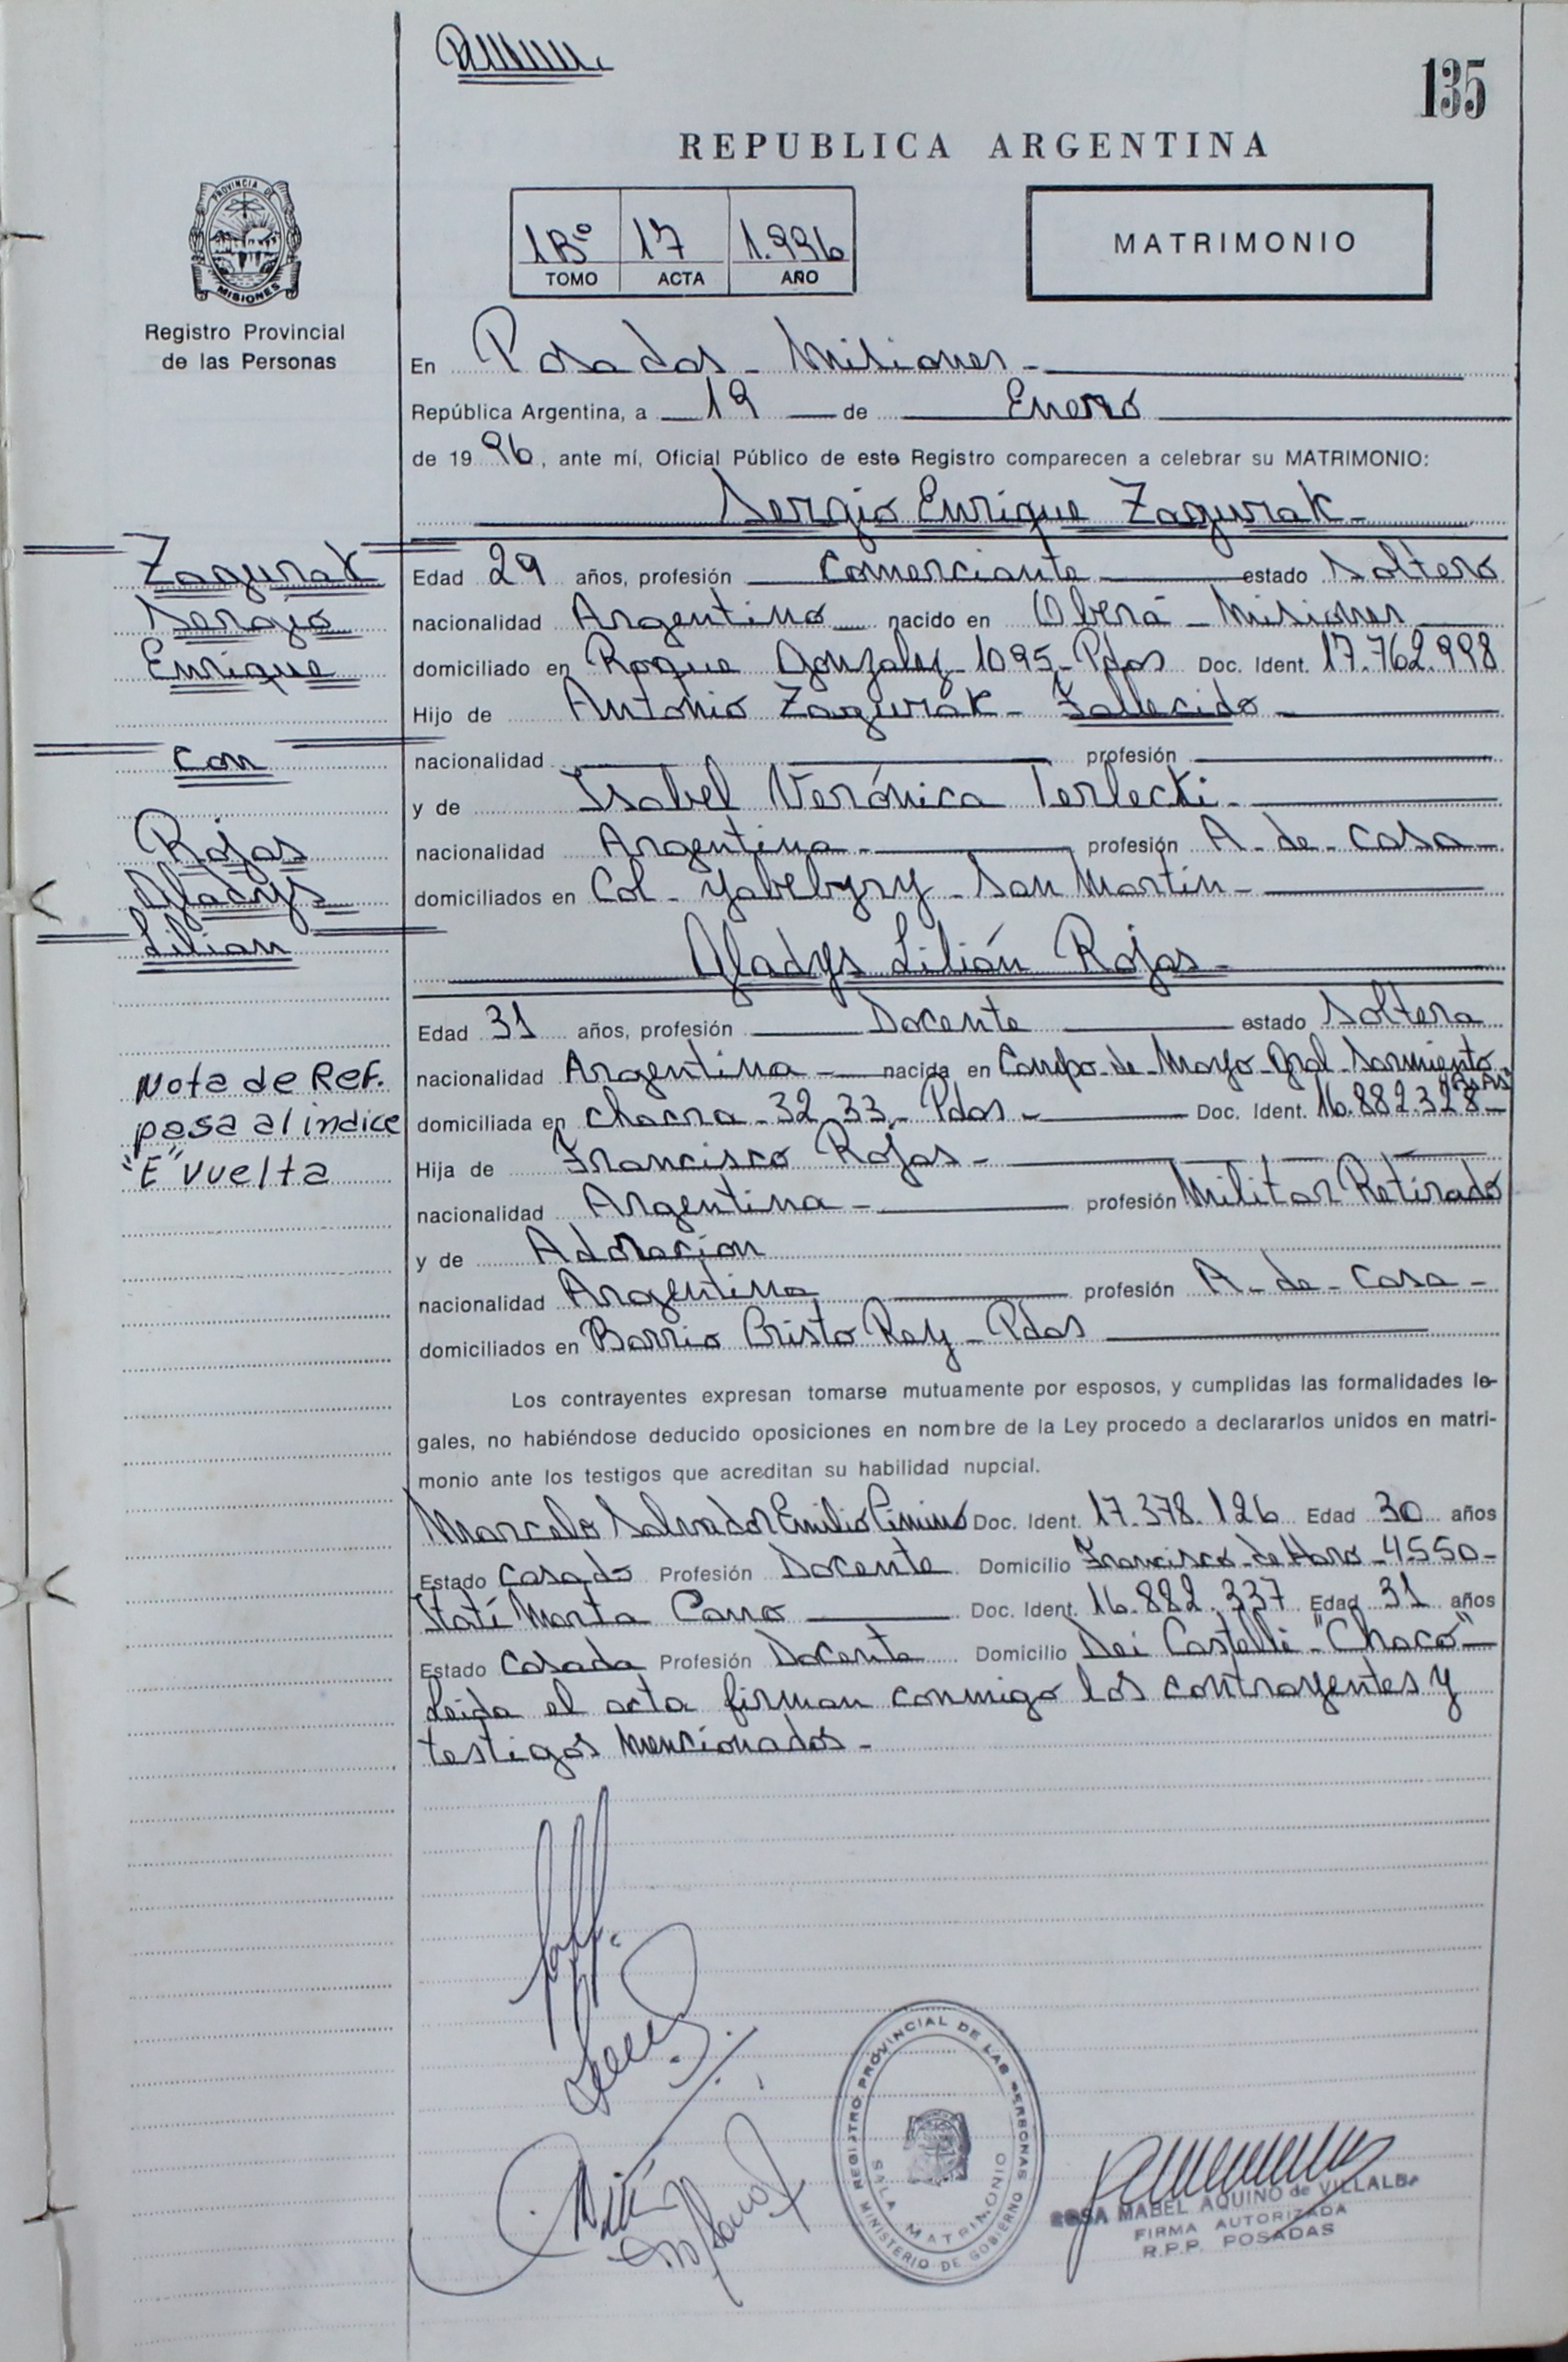 135
REPUBLICA ARGENTINA
1Bº 17 1.996
TOMO ACTA AÑO
MATRIMONIO
PROVINCIA DE
MISIONES
Registro Provincial
de las Personas
En Posadas - Misiones -
República Argentina, a 19 de Enero
de 1996, ante mí, Oficial Público de este Registro comparecen a celebrar su MATRIMONIO:
Sergio Enrique Zagurak -
Zagurak
Sergio
Enrique
con
Rojas
Gladys
Lilian
Nota de Ref.
pasa al indice
"E" vuelta
Edad 29 años, profesión Comerciante estado Soltero
nacionalidad Argentino nacido en Oberá - Misiones
domiciliado en Roque Gonzalez 1095 - Pdas Doc. Ident. 17.762.998
Hijo de Antonio Zagurak - Fallecido -
nacionalidad profesión
y de Isabel Verónica Terlecki -
nacionalidad Argentina - profesión A - de - casa -
domiciliados en Col - Yabebyry - San Martín -
Gladys Lilián Rojas -
Edad 31 años, profesión Docente estado Soltera
nacionalidad Argentina - nacida en Campo - de - Mayo - Gral - Sarmiento "Bs As"
domiciliada en chacra - 32 33 - Pdas - Doc. Ident. 16.882.328 -
Hija de Francisco Rojas -
nacionalidad Argentina - profesión Militar Retirado
y de Adoracion
nacionalidad Argentina profesión A - de - casa -
domiciliados en Barrio Cristo Rey - Pdas
Los contrayentes expresan tomarse mutuamente por esposos, y cumplidas las formalidades le-
gales, no habiéndose deducido oposiciones en nombre de la Ley procedo a declararlos unidos en matri-
monio ante los testigos que acreditan su habilidad nupcial.
Marcelo Salvador Emilio Cimino Doc. Ident. 17.378.126 Edad 30 años
Estado casado Profesión Docente Domicilio Francisco - de Haro - 4550 -
Itatí Marta Cano Doc. Ident. 16.882.337 Edad 31 años
Estado casada Profesión Docente Domicilio Dei Castelli - "Chaco" -
Leida el acta firman conmigo los contrayentes y
testigos mencionados -
REGISTRO PROVINCIAL DE LAS PERSONAS
MINISTERIO DE GOBIERNO
SALA MATRIMONIO
ROSA MABEL AQUINO de VILLALBA
FIRMA AUTORIZADA
R.P.P. POSADAS